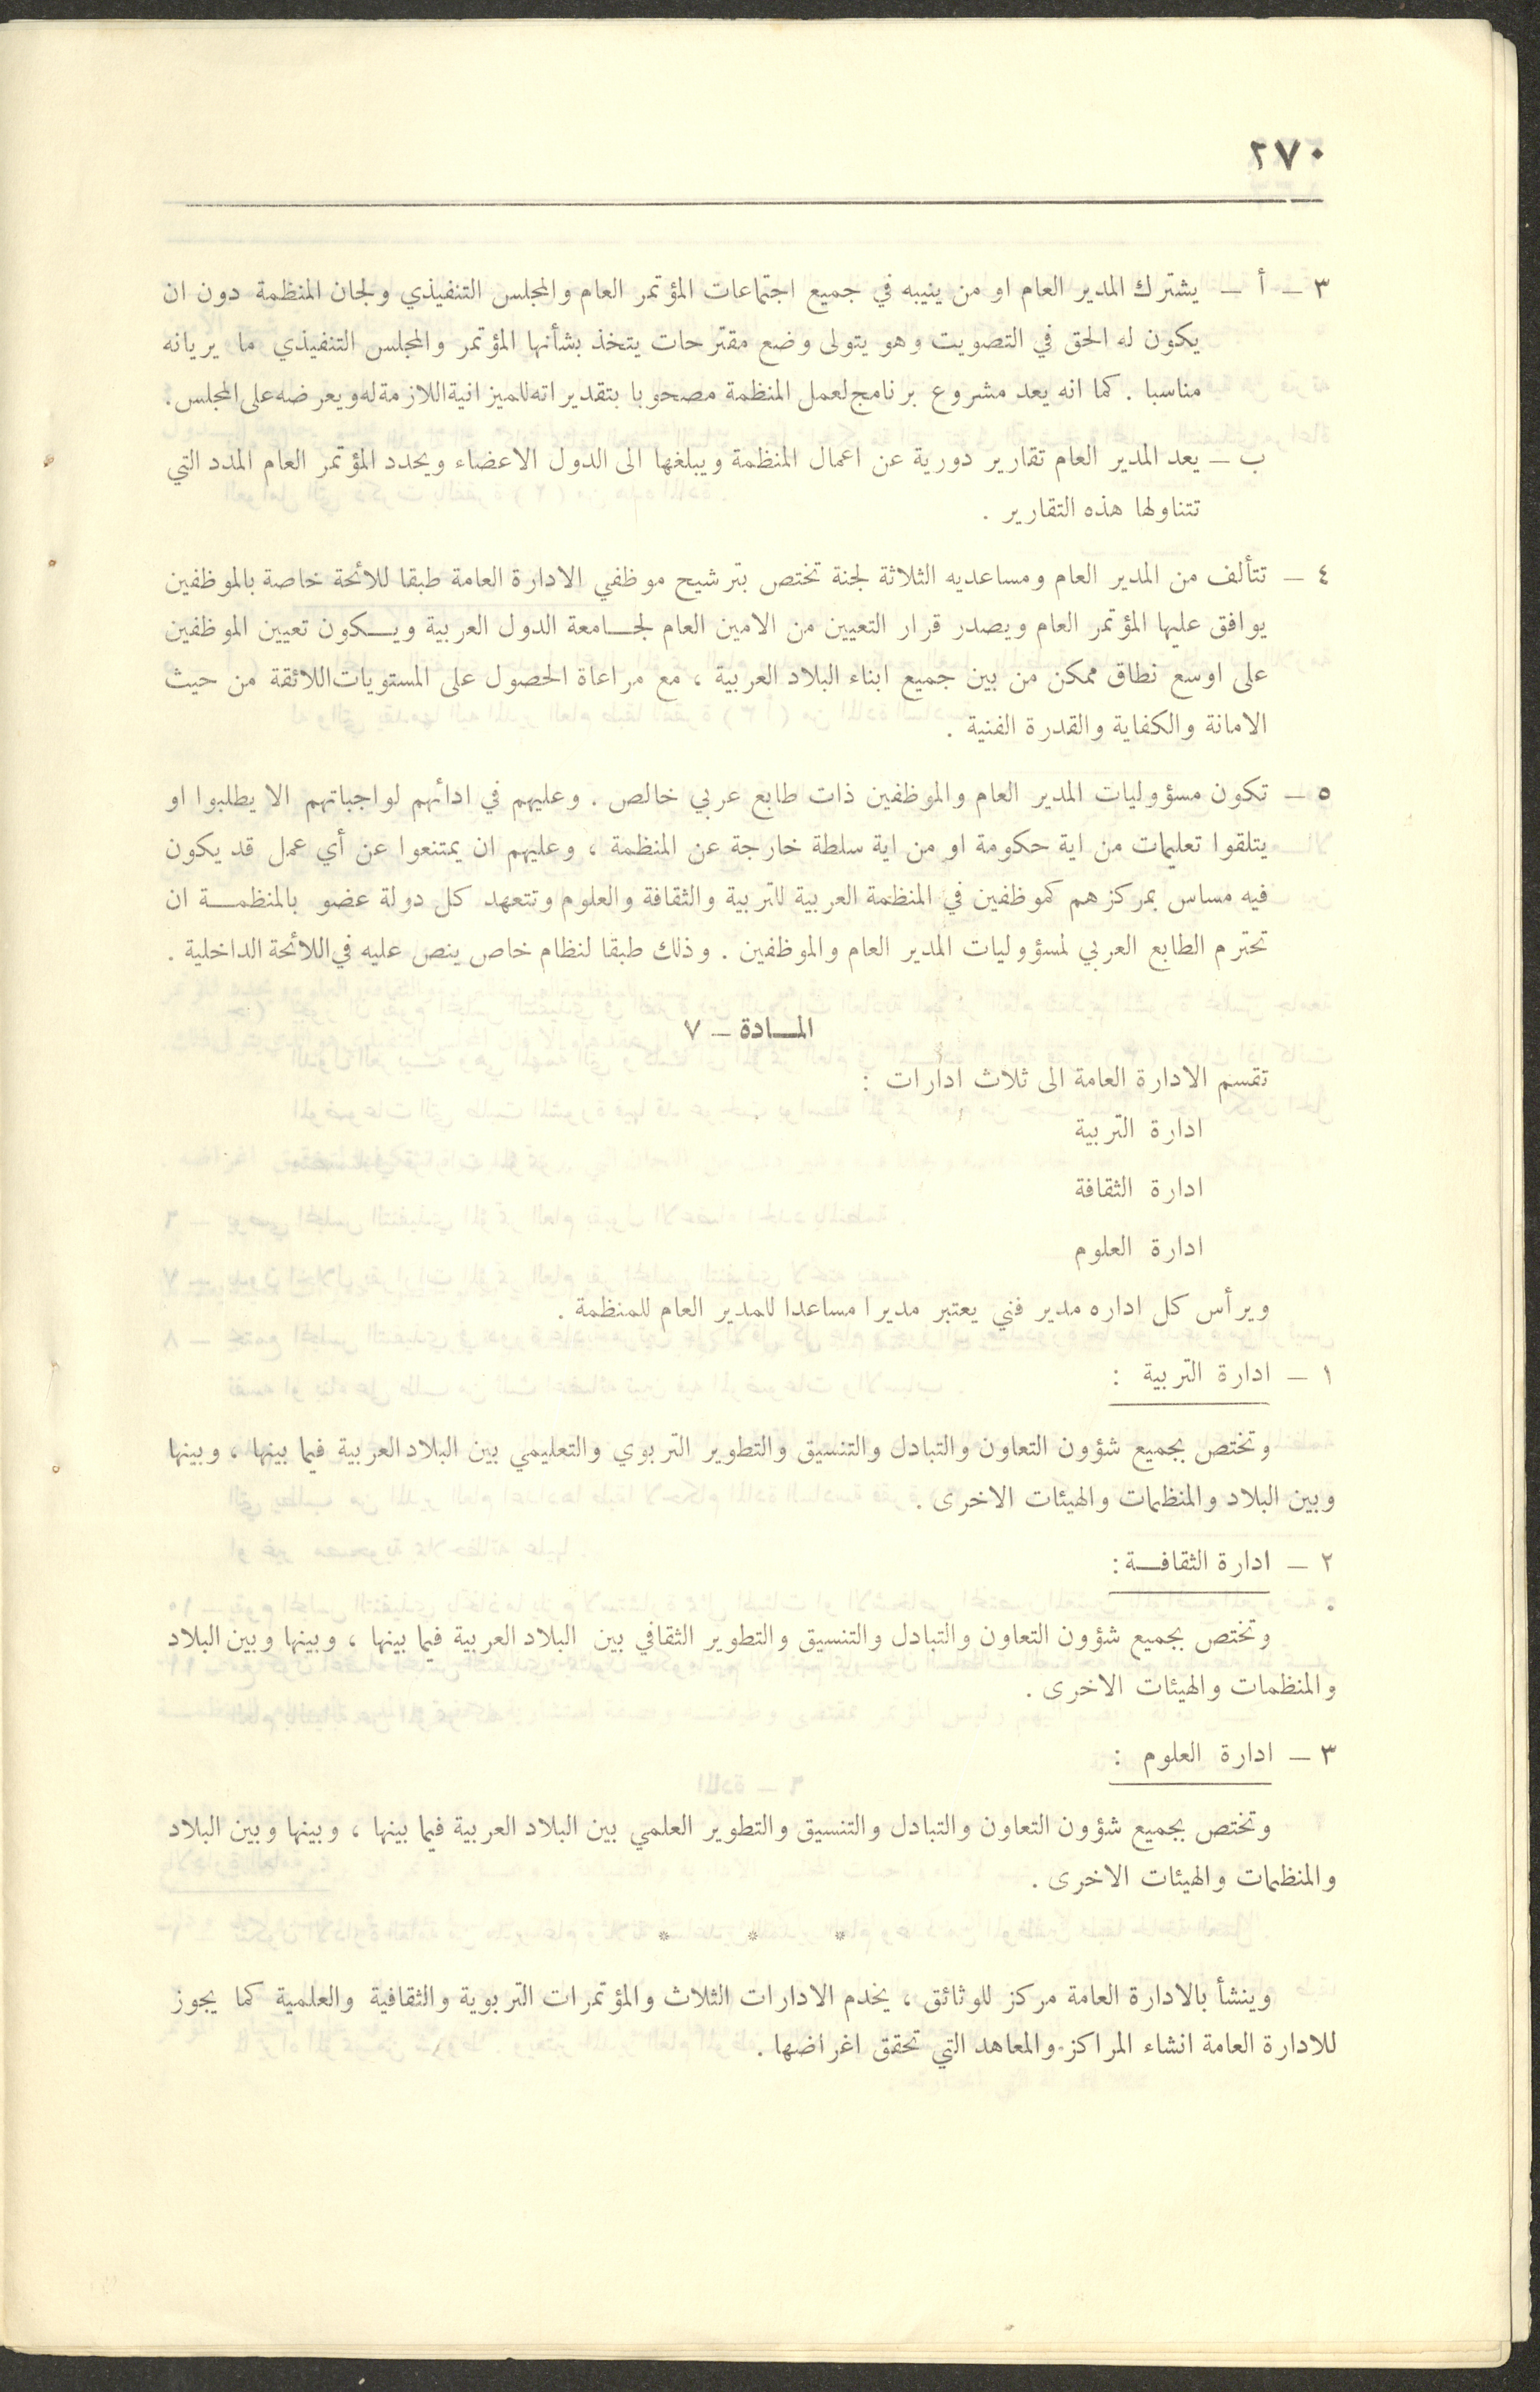 ٢٧٠
٣ — أ — يشترك المدير العام او من ينيبه في جميع اجتماعات المؤتمر العام والمجلس التنفيذي ولجان المنظمة دون ان
يكون له الحق في التصويت وهو يتولى وضع مقترحات يتخذ بشأنها المؤتمر والمجلس التنفيذي ما يريانه
مناسبا . كما انه يعد مشروع برنامج لعمل المنظمة مصحوبا بتقديراته للميزانية اللازمة له ويعرضه على المجلس .
ب — يعد المدير العام تقارير دورية عن اعمال المنظمة ويبلغها الى الدول الاعضاء ويحدد المؤتمر العام المدد التي
تتناولها هذه التقارير .
٤ — تتألف من المدير العام ومساعديه الثلاثة لجنة تختص بترشيح موظفي الادارة العامة طبقا للائحة خاصة بالموظفين
يوافق عليها المؤتمر العام ويصدر قرار التعيين من الامين العام لجـامعة الدول العربية ويـكون تعيين الموظفين
على اوسع نطاق ممكن من بين جميع ابناء البلاد العربية ، مع مراعاة الحصول على المستويات اللائقة من حيث
الامانة والكفاية والقدرة الفنية .
٥ — تكون مسؤوليات المدير العام والموظفين ذات طابع عربي خالص . وعليهم في ادائهم لواجباتهم الا يطلبوا او
يتلقوا تعليمات من اية حكومة او من اية سلطة خارجة عن المنظمة ، وعليهم ان يمتنعوا عن أي عمل قد يكون
فيه مساس بمركزهم كموظفين في المنظمة العربية للتربية والثقافة والعلوم وتتعهد كل دولة عضو بالمنظمـة ان
تحترم الطابع العربي لمسؤوليات المدير العام والموظفين . وذلك طبقا لنظام خاص ينص عليه في اللائحة الداخلية .
المـادة — ٧
تقسم الادارة العامة الى ثلاث ادارات :
ادارة التربية
ادارة الثقافة
ادارة العلوم
ويرأس كل اداره مدير فني يعتبر مديرا مساعدا للمدير العام للمنظمة .
١ — ادارة التربية :
وتختص بجميع شؤون التعاون والتبادل والتنسيق والتطوير التربوي والتعليمي بين البلاد العربية فيما بينها ، وبينها
وبين البلاد والمنظمات والهيئات الاخرى .
٢ — ادارة الثقافـة :
وتختص بجميع شؤون التعاون والتبادل والتنسيق والتطوير الثقافي بين البلاد العربية فيما بينها ، وبينها وبين البلاد
والمنظمات والهيئات الاخرى .
٣ — ادارة العلوم :
وتختص بجميع شؤون التعاون والتبادل والتنسيق والتطوير العلمي بين البلاد العربية فيما بينها ، وبينها وبين البلاد
والمنظمات والهيئات الاخرى .
* * *
وينشأ بالادارة العامة مركز للوثائق ، يخدم الادارات الثلاث والمؤتمرات التربوية والثقافية والعلمية كما يجوز
للادارة العامة انشاء المراكز والمعاهد التي تحقق اغراضها .